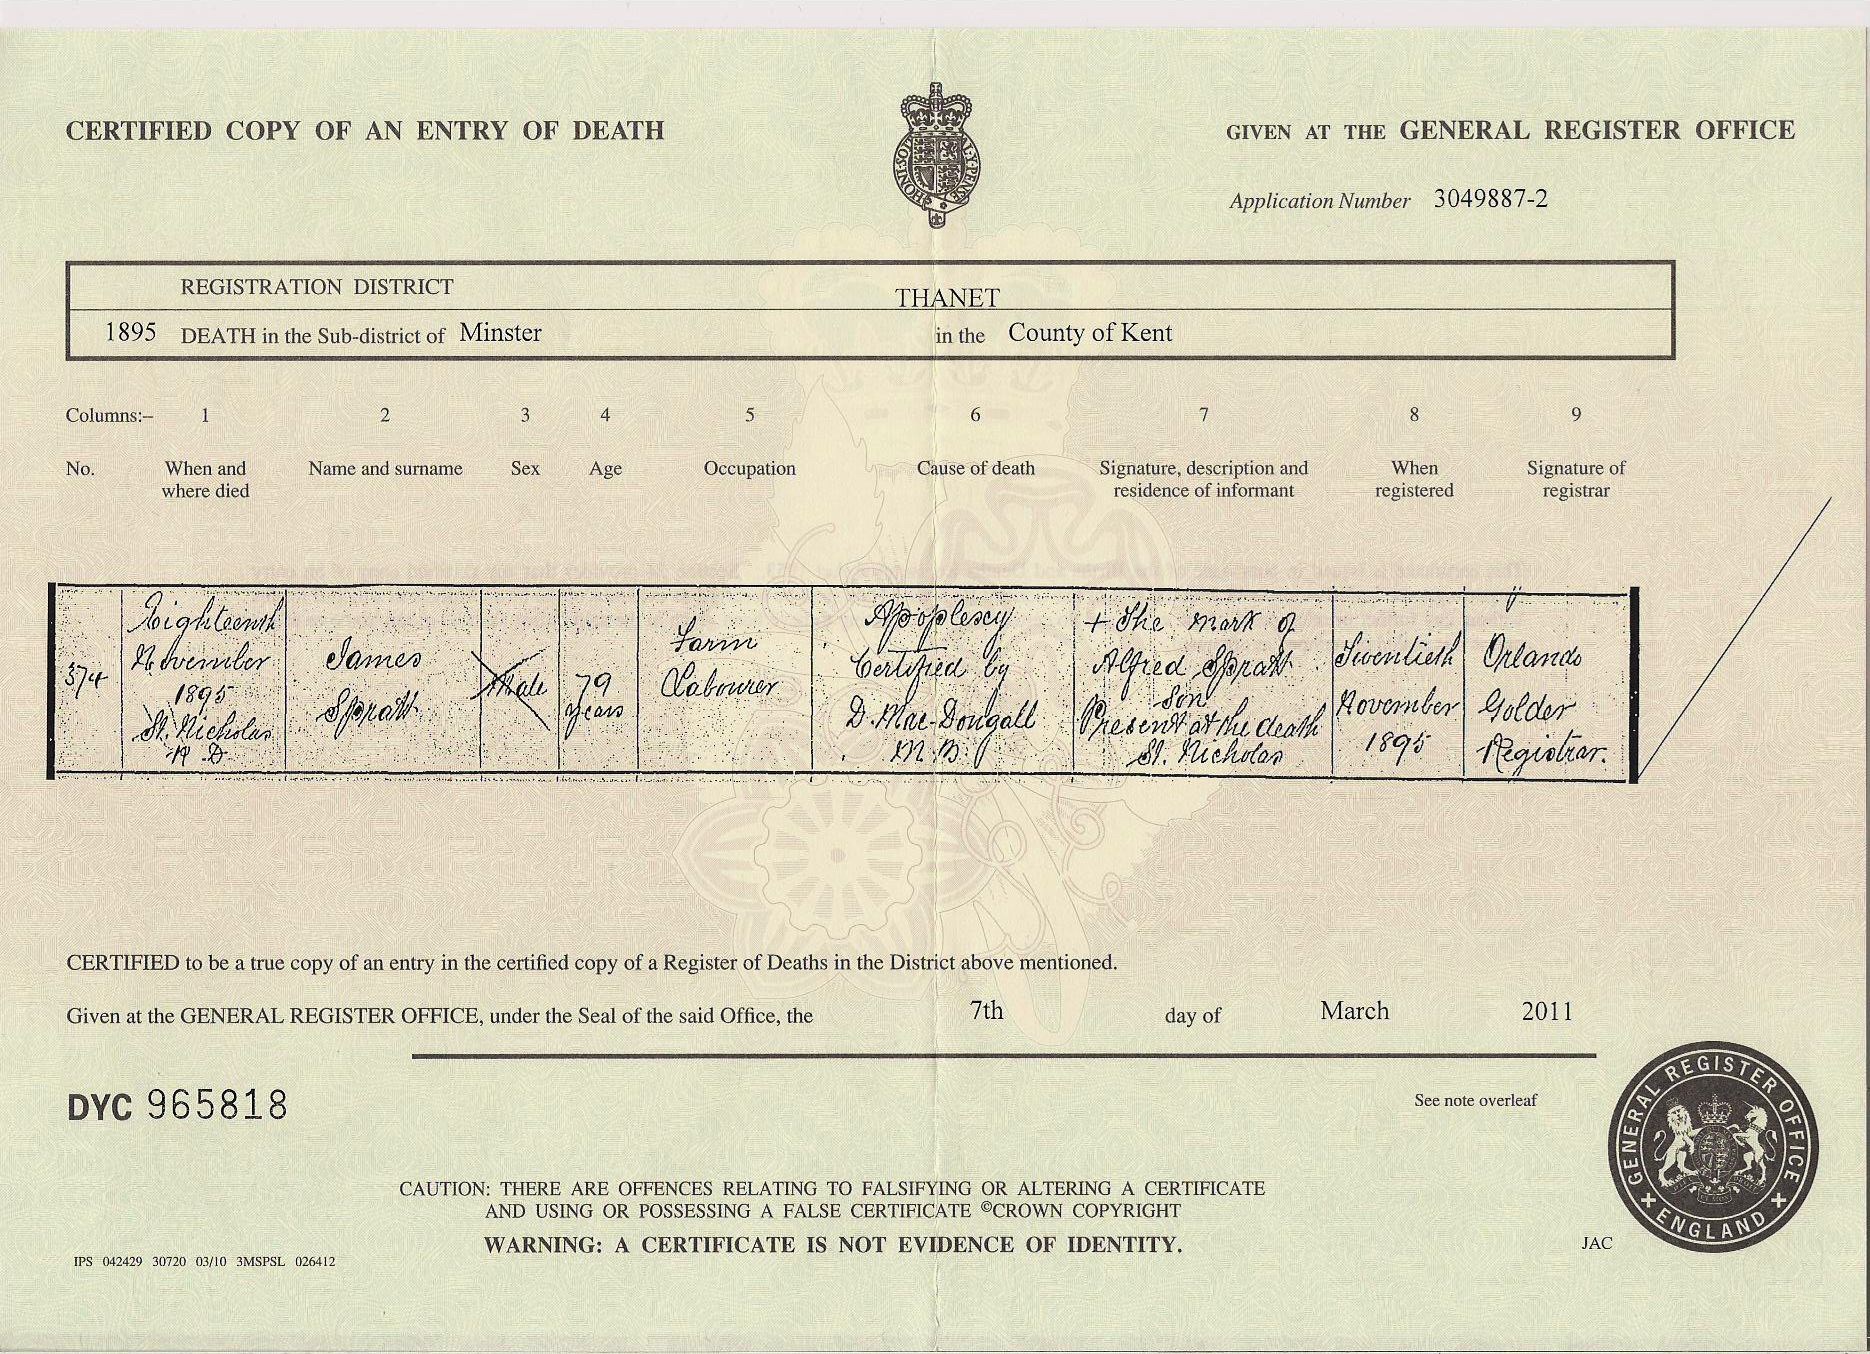 CERTIFIED COPY OF AN ENTRY OF DEATH
GIVEN AT THE GENERAL REGISTER OFFICE
HONI·SOI
AL·Y·PENSE
Application Number 3049887-2
REGISTRATION DISTRICT THANET
1895 DEATH in the Sub-district of Minster in the County of Kent
Columns:– 1 2 3 4 5 6 7 8 9
No. When and where died Name and surname Sex Age Occupation Cause of death Signature, description and residence of informant When registered Signature of registrar
374
Eighteenth
November
1895
St. Nicholas
R.D.
James
Spratt
Male
79
years
Farm
Labourer
Apoplexy
Certified by
D. Mac-Dougall
M.B.
+ The mark of
Alfred Spratt
Son
Present at the death
St. Nicholas
Twentieth
November
1895
Orlando
Golder
Registrar.
CERTIFIED to be a true copy of an entry in the certified copy of a Register of Deaths in the District above mentioned.
Given at the GENERAL REGISTER OFFICE, under the Seal of the said Office, the 7th day of March 2011
DYC 965818
See note overleaf
GENERAL REGISTER OFFICE
ENGLAND
CAUTION: THERE ARE OFFENCES RELATING TO FALSIFYING OR ALTERING A CERTIFICATE
AND USING OR POSSESSING A FALSE CERTIFICATE ©CROWN COPYRIGHT
WARNING: A CERTIFICATE IS NOT EVIDENCE OF IDENTITY.
JAC
IPS 042429 30720 03/10 3MSPSL 026412